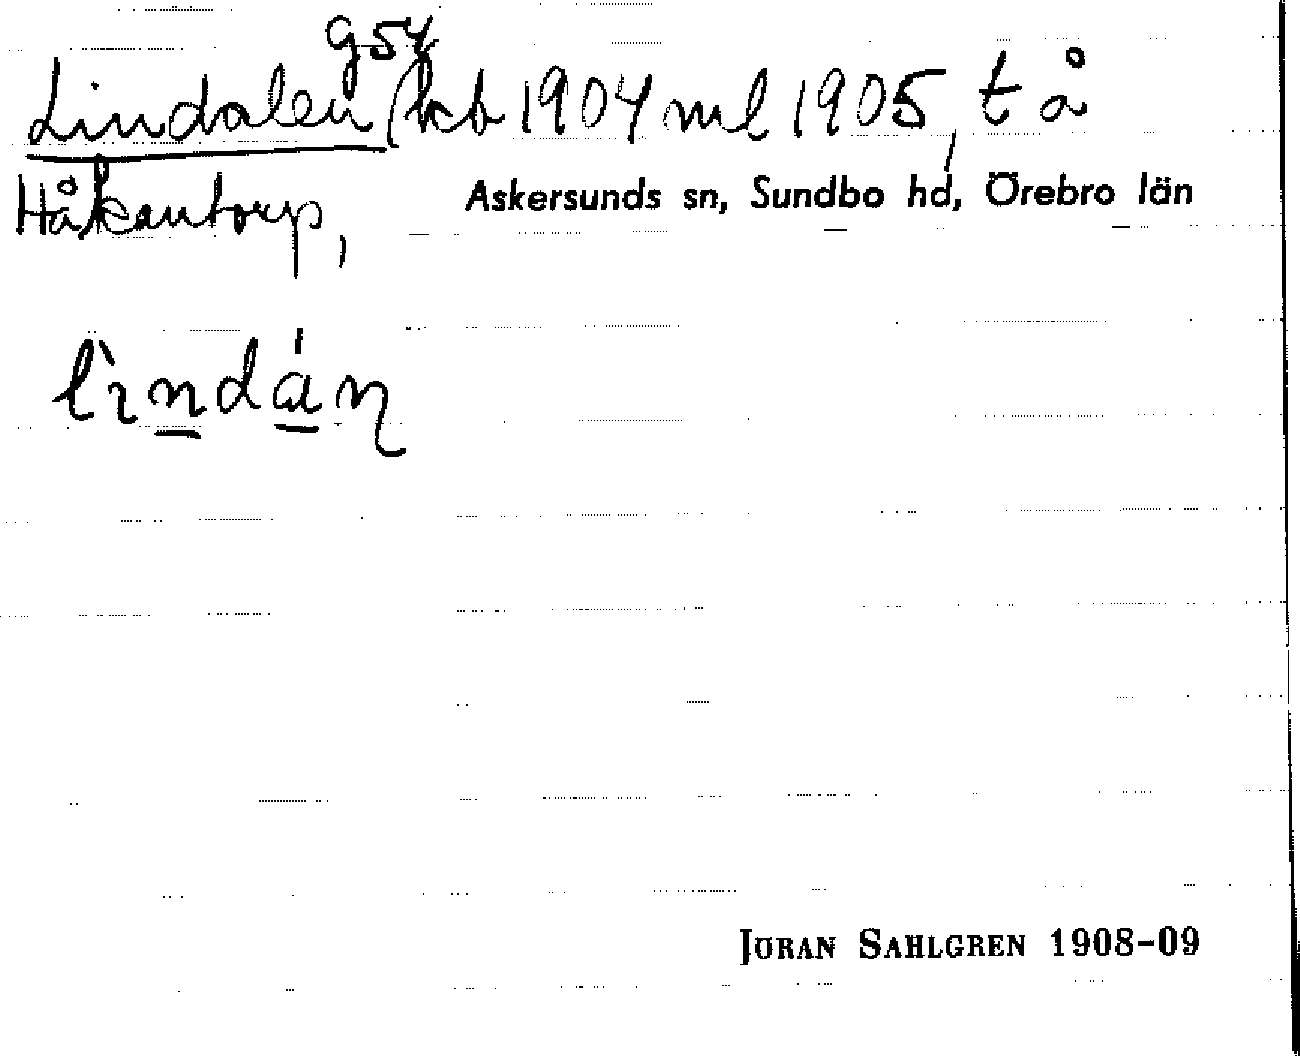 g 54
Lindalen (kb 1904 ml 1905, t å
Håkantorp, Askersunds sn, Sundbo hd, Örebro län
lìndán
JÖRAN SAHLGREN 1908-09